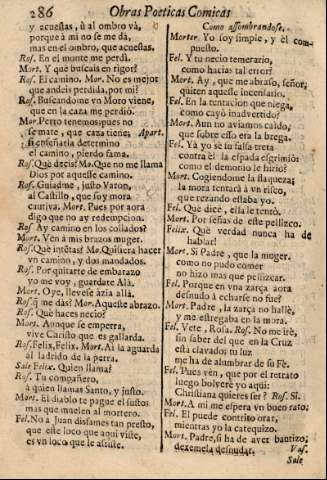 286 Obras Poeticas Comicas
y acuestas, ù al ombro và,
porque à mi no se me dà,
mas en el ombro, que acuestas.
Ros. En el monte me perdì.
Mort. Y que buscais en rigor?
Ros. El camino. Mor. No es mejor
que andeis perdida, por mi?
Ros. Buscandome vn Moro viene,
que en la caza me perdiò.
Mor. Perro tenemos, pues no
se mate, que caza tiene; Apart.
si enseñarla determino
el camino, pierdo fama.
Ros. Què dezis? Mo. Que no me llama
Dios por aquesse camino.
Ros. Guiadme, justo Varon,
al Castillo, que soy mora
cautiva. Mort. Pues por aora
digo que no ay redempcion.
Ros. Ay camino en los collados?
Mort. Ven à mis brazos muger.
Ros. Què intẽtas? Mo. Quisiera hacer
vn camino, y dos mandados.
Ros. Por quitarte de embarazo
yo me voy, guardate Alà.
Mort. Oye, llevese àzia allà.
Ros. q̃ me dàs? Mor. Aqueste abrazo.
Ros. Què haces necio?
Mort. Aunque se emperra,
vive Christo que es gallarda.
Ros. Felix, Felix. Mort. Al la aguarda
al ladrido de la perra.
Sale Felix. Quien llama?
Ros. Tu compañero,
à quien llamas Santo, y justo.
Mort. El diablo te pague el susto,
mas que muelen al mortero.
Fel. No à Juan dissames tan presto,
que este loco que aqui viste,
es vn loco que le assiste.
Como assombrandose.
Morter. Yo soy simple, y èl com-
puesto.
Fel. Y tu necio temerario,
como hacias tal error?
Mort. Ay, que me abraso, señor,
quiten aquesse incensario.
Fel. En la tentacion que niega,
como cayò inadvertido?
Mort. Aun no aviamos caìdo,
que sobre esso era la brega.
Fel. Yà yo se su falsa treta
contra èl la espada esgrimiò:
como el demonio le hiriò?
Mort. Cogiendome la flaqueza;
la mora tentarà à vn risco,
que rezando estaba yo.
Fel. Què dice, ella le tentò.
Mort. Por señas de este pellizco.
Felix. Què verdad nunca ha de
hablar!
Mort. Si Padre, que la muger,
como no pudo comer
no hizo mas que pellizcar.
Fel. Porque en vna zarça aora
desnudo à echarse no fue?
Mort. Padre, la zarça no hallè,
y me estregaba en la mora.
Fel. Vete, Rosa. Ros. No me irè,
sin saber del que en la Cruz
està clavado; tu luz
me ha de alumbrar de su Fè.
Fel. Pues vèn, que por el retrato
luego bolverè yo aqui:
Christiana quieres ser? Ros. Si.
Mort. A mi me espera vn buen rato.
Fel. El puede contrito orar,
mientras yo la catequizo.
Mort. Padre, si ha de aver bautizo;
dexemela desnudar. Vas.
Sale